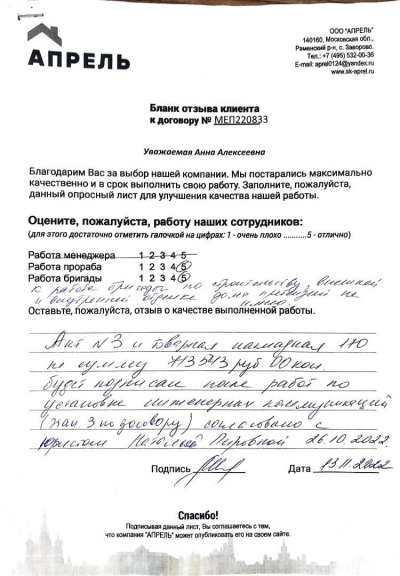 АПРЕЛЬ
ООО "АПРЕЛЬ"
140160, Московская обл.,
Раменский р-н, с. Заворово.
Тел.: +7 (495) 532-00-36
E-mail: aprel0124@yandex.ru
www.sk-aprel.ru
Бланк отзыва клиента
к договору № МЕП220833
Уважаемая Анна Алексеевна
Благодарим Вас за выбор нашей компании. Мы постарались максимально
качественно и в срок выполнить свою работу. Заполните, пожалуйста,
данный опросный лист для улучшения качества нашей работы.
Оцените, пожалуйста, работу наших сотрудников:
(для этого достаточно отметить галочкой на цифрах: 1 - очень плохо ...........5 - отлично)
Работа менеджера 1 2 3 4 5
Работа прораба 1 2 3 4 5
Работа бригады 1 2 3 4 5
к работе бригады по строительству, внешней
и внутренней отделке дома претензий не
имею.
Оставьте, пожалуйста, отзыв о качестве выполненной работы.
Акт N3 и товарная накладная 170
на сумму 713543 руб. 00 коп.
будет подписан после работ по
установке инженерных коммуникаций
по договору) согласовано с
юристом Натальей 26.10.2022
Подпись Дата 13.11.2022
Спасибо!
Подписывая данный лист, Вы соглашаетесь с тем,
что компания "АПРЕЛЬ" может опубликовать его на своем сайте.